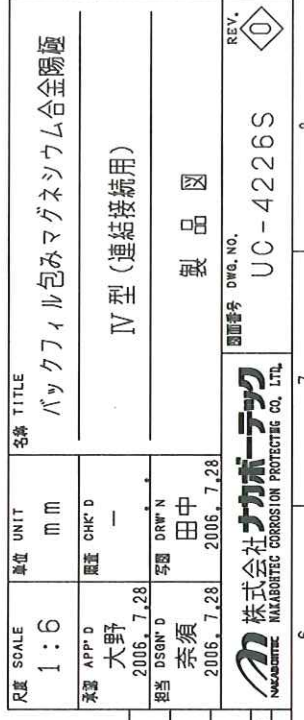 尺度 SCALE
1:6
単位 UNIT
mm
名称 TITLE
バックフィル包みマグネシウム合金陽極
Ⅳ型(連結接続用)
製品図
承認 APP'D
大野
2006. 7.28
照査 CHK'D
—
. .
担当 DSGN'D
奈須
2006. 7.28
写図 DRW'N
田中
2006. 7.28
NAKABOHTEC
株式会社ナカボーテック
NAKABOHTEC CORROSION PROTECTING CO. LTD.
図面番号 DWG. NO.
UC-4226S
REV.
0
6
7